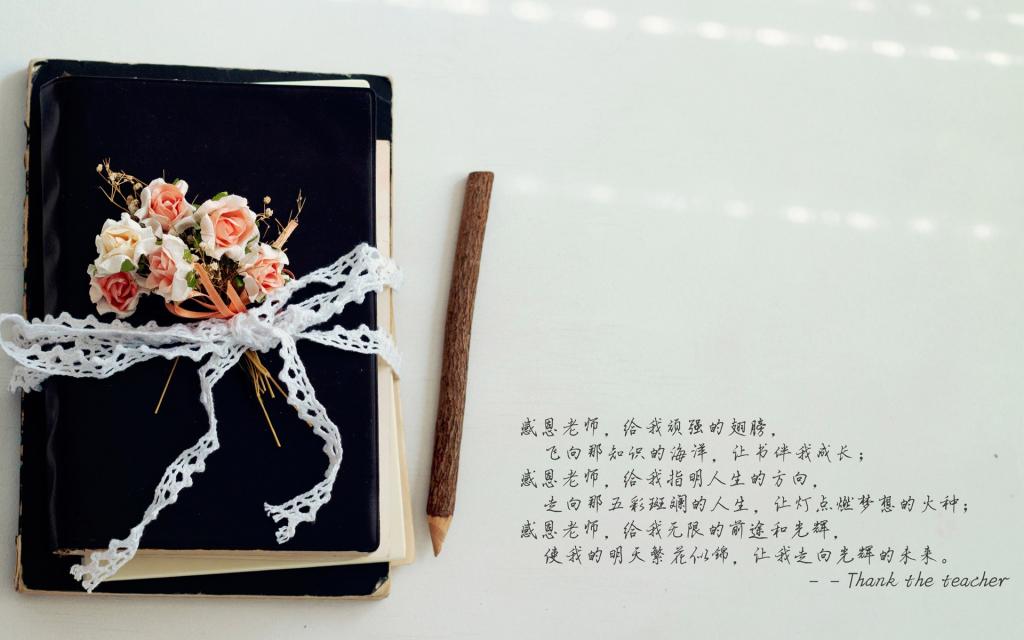 感恩老师，给我顽强的翅膀，
飞向那知识的海洋，让书伴我成长；
感恩老师，给我指明人生的方向，
走向那五彩斑斓的人生，让灯点燃梦想的火种；
感恩老师，给我无限的前途和光辉，
使我的明天繁花似锦，让我走向光辉的未来。
- - Thank the teacher